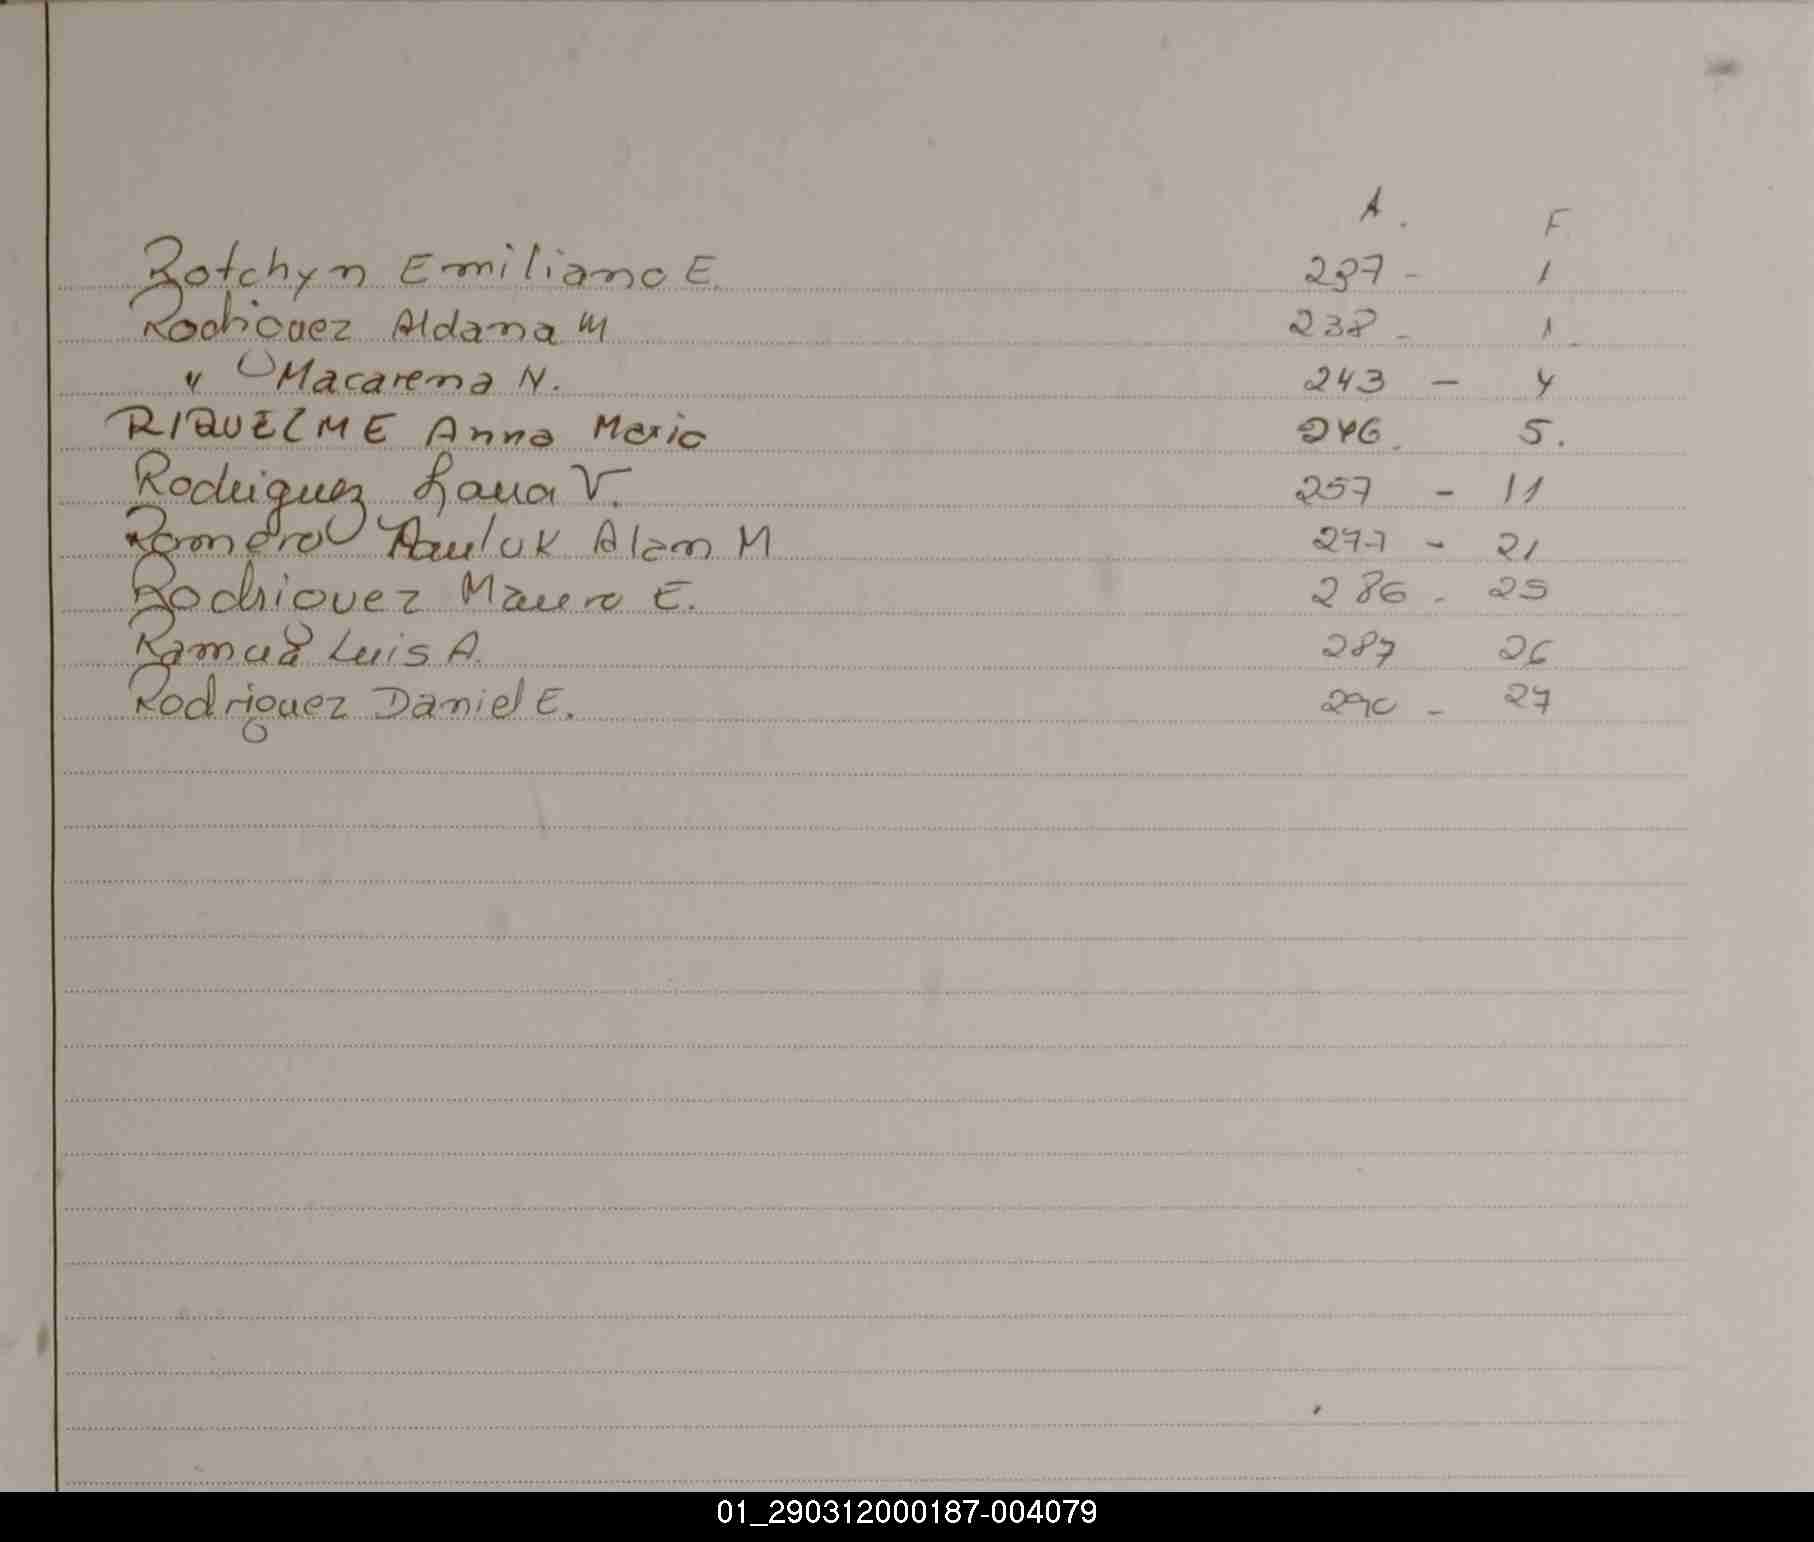 A. F
Rotchyn Emiliano E. 237 - 1
Rodriguez Aldana M 238 - 1.
" Macarena N. 243 - 4
RIQUELME Anna Maria 246. 5.
Rodriguez Lara V. 257 - 11
Romero Pauluk Alan M 277 - 21
Rodriguez Mauro E. 286 - 25
Luis A. 287 26
Rodriguez Daniel E. 290 - 27
01_290312000187-004079